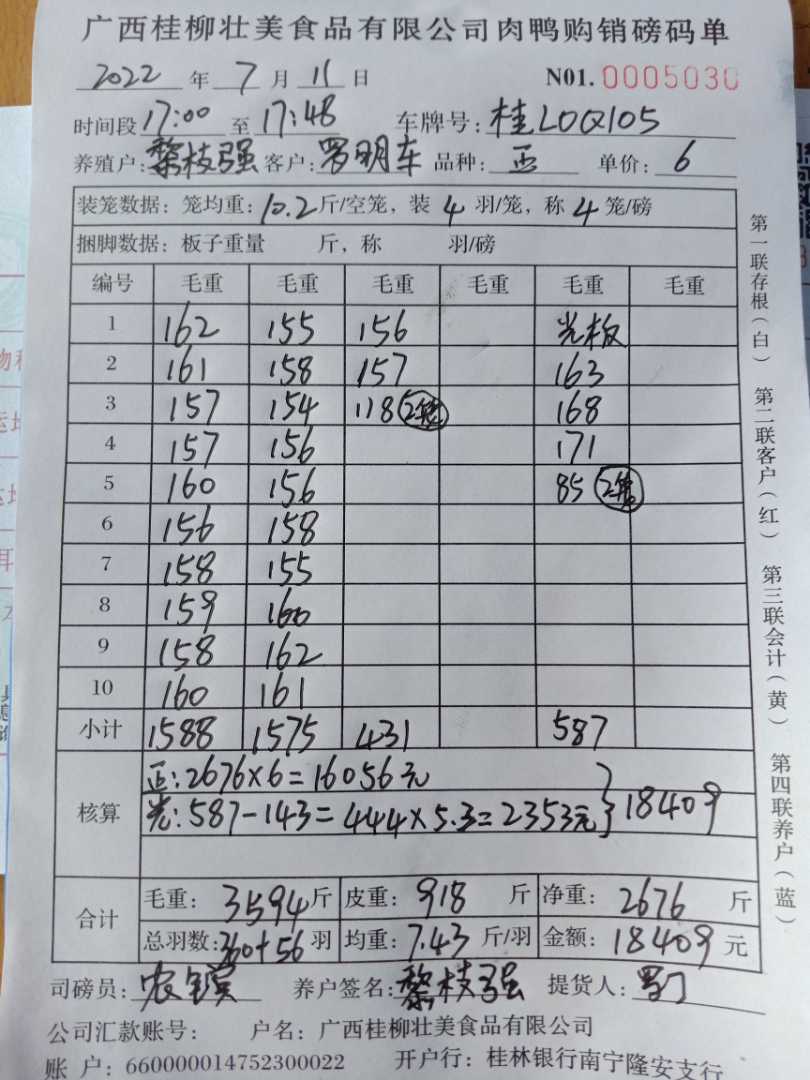 广西桂柳壮美食品有限公司肉鸭购销磅码单
2022 年 7 月 11 日 N01. 0005030
时间段 17:00 至 17:48 车牌号: 桂L0Q105
养殖户: 黎枝强 客户: 罗明车 品种: 正 单价: 6
装笼数据: 笼均重: 10.2 斤/空笼, 装 4 羽/笼, 称 4 笼/磅
捆脚数据: 板子重量 斤, 称 羽/磅
编号 毛重 毛重 毛重 毛重 毛重 毛重
1 162 155 156 光板
2 161 158 157 163
3 157 154 118 2笼 168
4 157 156 171
5 160 156 85 2笼
6 156 158
7 158 155
8 159 160
9 158 162
10 160 161
小计 1588 1575 431 587
核算
正: 2676×6=16056元
光: 587-143=444×5.3=2353元 } 18409
合计
毛重: 3594 斤 皮重: 918 斤 净重: 2676 斤
总羽数: 360+56 羽 均重: 7.43 斤/羽 金额: 18409 元
司磅员: 农 养户签名: 黎枝强 提货人: 罗
公司汇款账号: 户名: 广西桂柳壮美食品有限公司
账 户: 660000014752300022 开户行: 桂林银行南宁隆安支行
第一联存根(白) 第二联客户(红) 第三联会计(黄) 第四联养户(蓝)